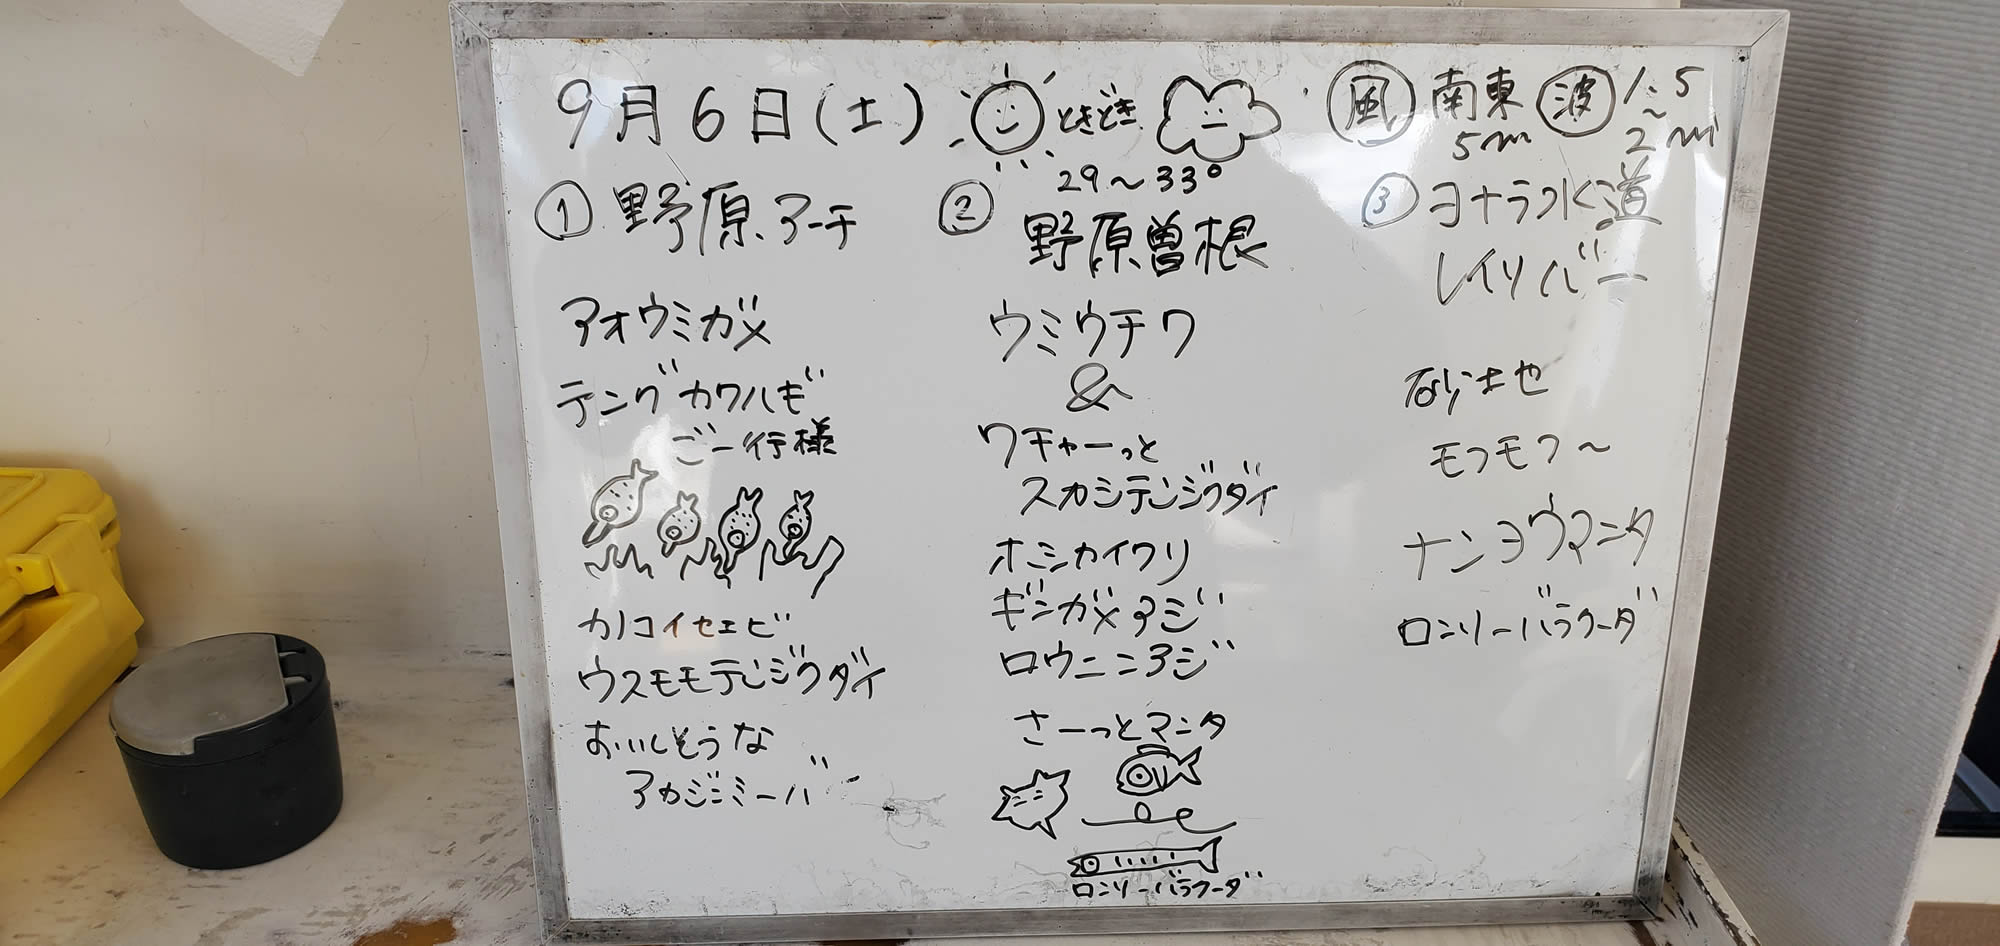 9月6日(土) ときどき 風 南東 5m 波 1.5~2m
29～33°
① 野原アーチ
アオウミガメ
テングカワハギ
ご一行様
カノコイセエビ
ウスモモテンジクダイ
おいしそうな
アカジンミーバイ
② 野原曽根
ウミウチワ
&
ワチャーっと
スカシテンジクダイ
ホシカイワリ
ギンガメアジ
ロウニンアジ
さーっとマンタ
ロンリーバラクーダ
③ ヨナラ水道
レイリバー
砂土也
モフモフ～
ナンヨウマンタ
ロンリーバラクーダ